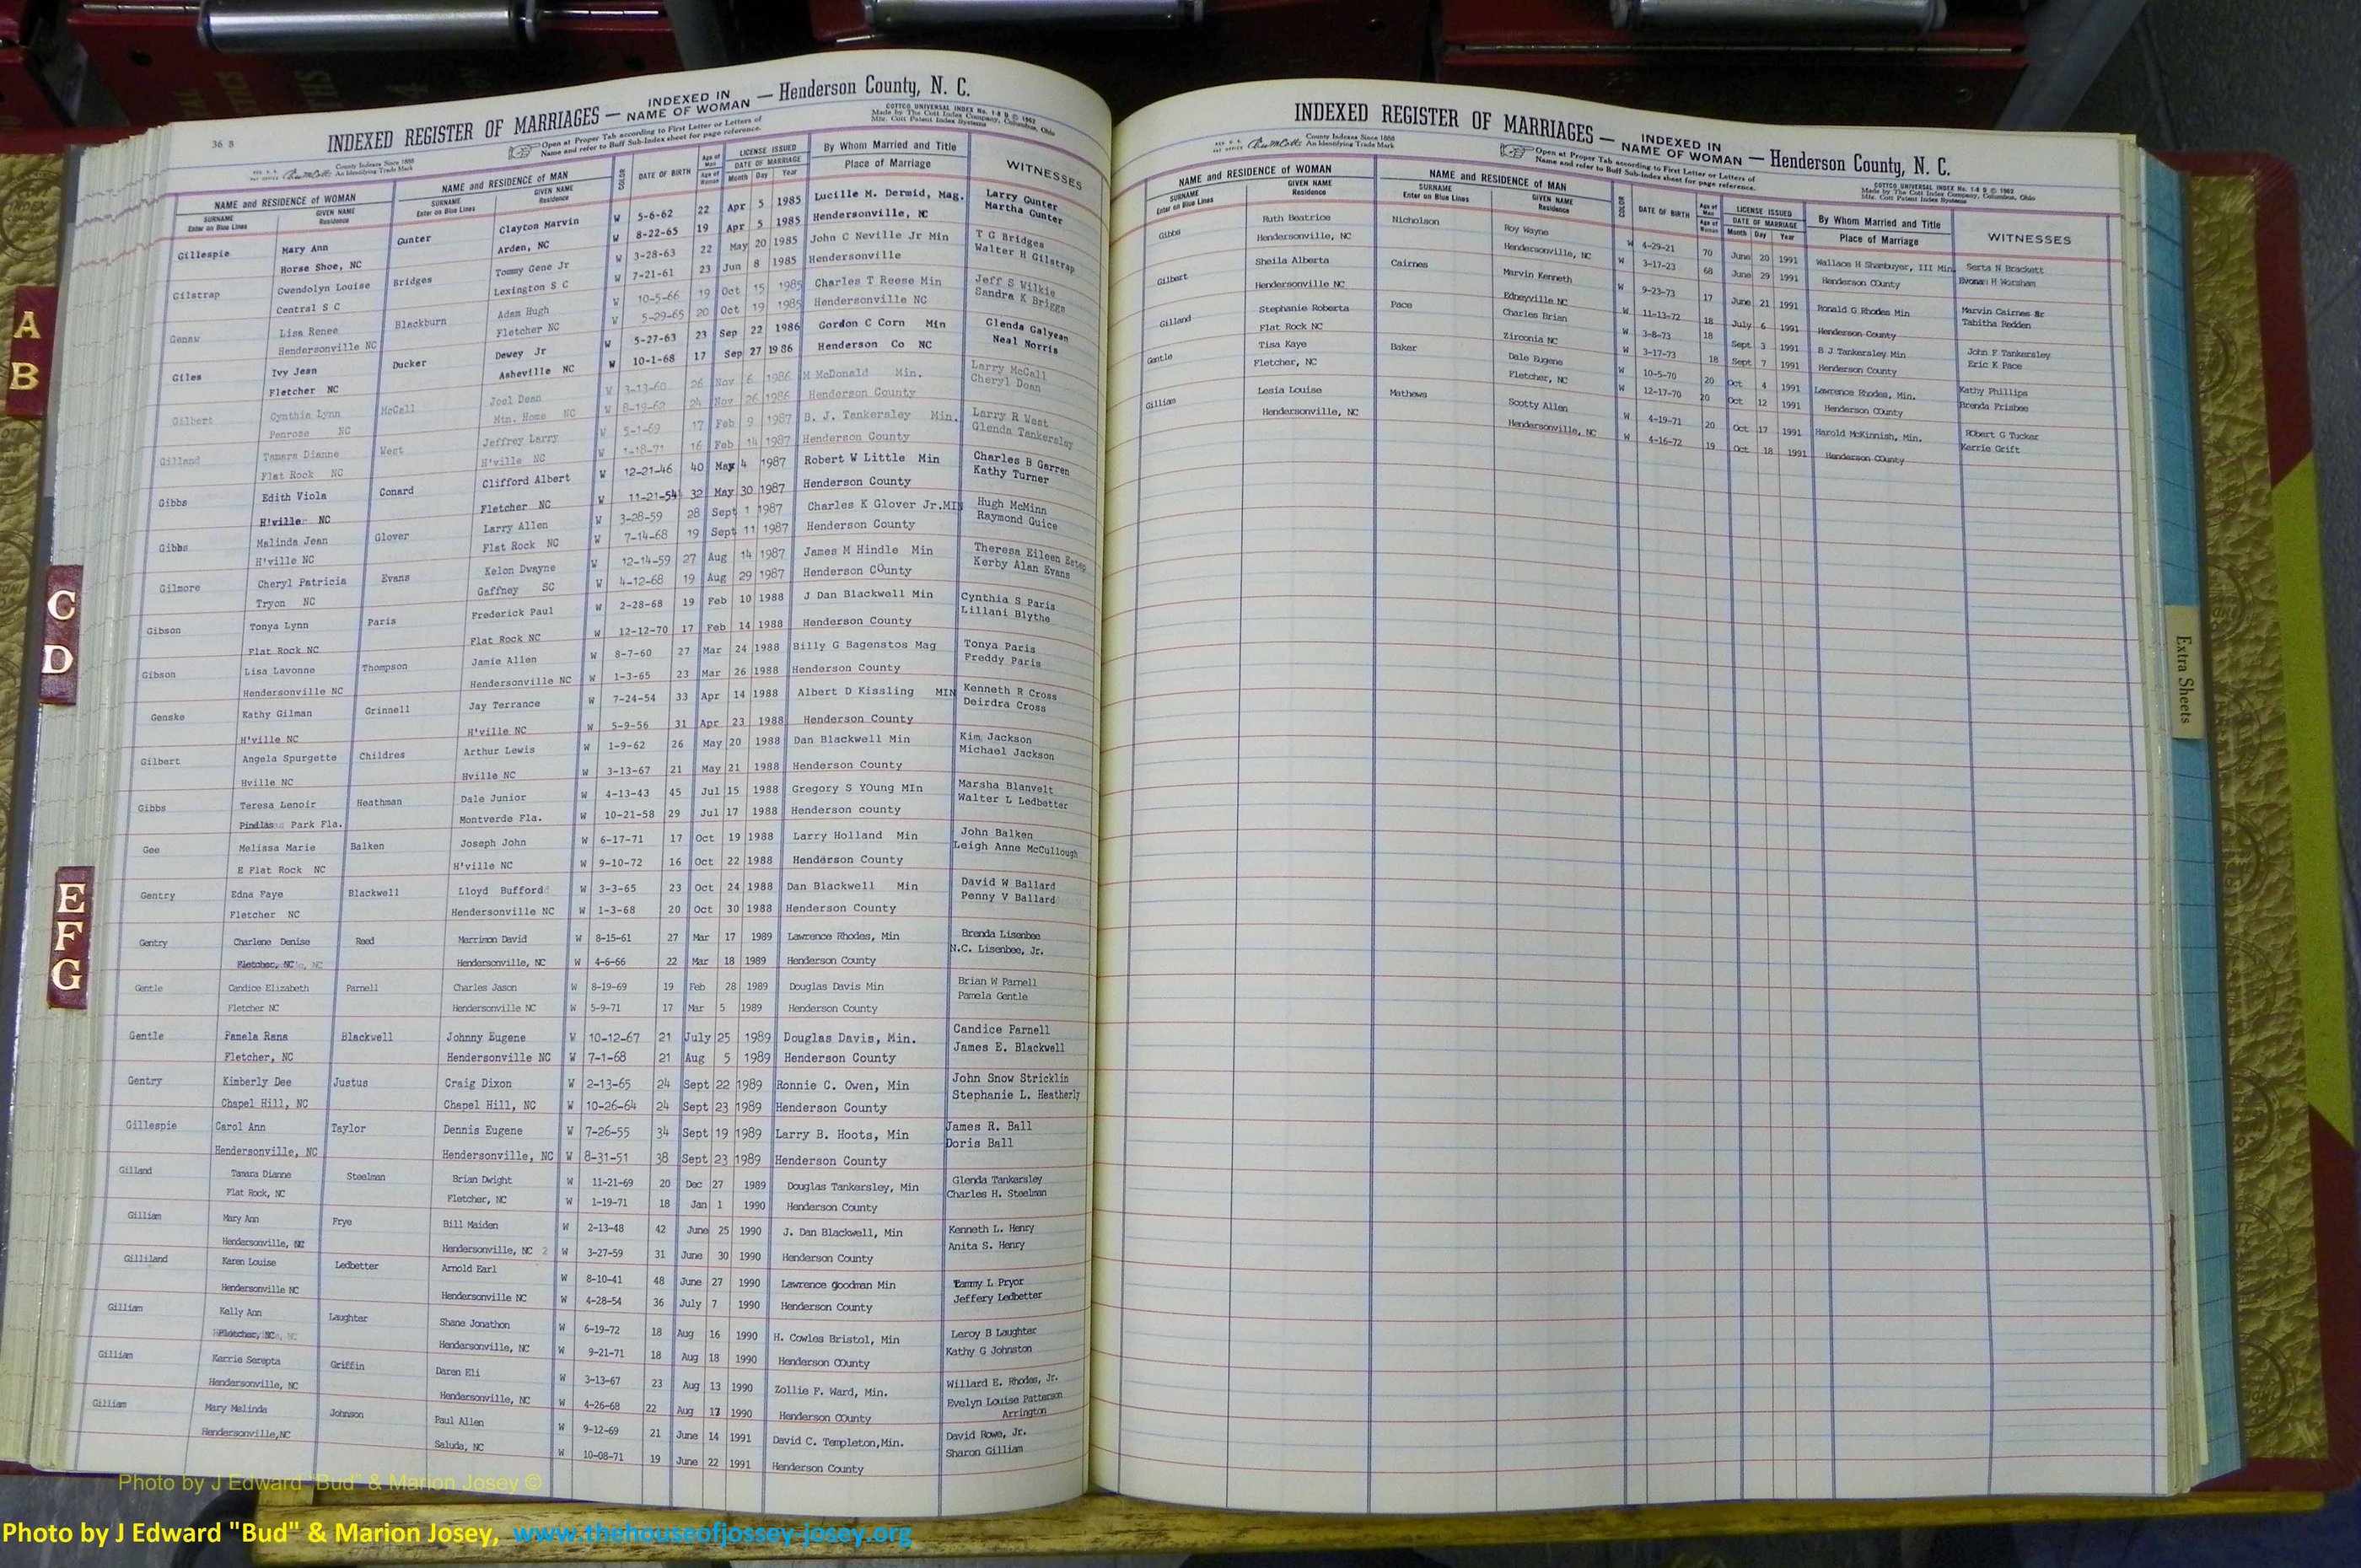 36 B
INDEXED REGISTER OF MARRIAGES — INDEXED IN NAME OF WOMAN — Henderson County, N. C.
County Indexes Since 1888
An Identifying Trade Mark
Open at Proper Tab according to First Letter or Letters of
Name and refer to Buff Sub-Index sheet for page reference.
COTTCO UNIVERSAL INDEX No. 1-8 B © 1962
Made by The Cott Index Company, Columbus, Ohio
Mfg. Cott Patent Index Systems
NAME and RESIDENCE OF WOMAN NAME and RESIDENCE OF MAN COLOR DATE OF BIRTH Age of Man LICENSE ISSUED By Whom Married and Title WITNESSES
SURNAME Enter on Blue Lines GIVEN NAME Residence SURNAME Enter on Blue Lines GIVEN NAME Residence Age of Woman DATE OF MARRIAGE Month Day Year Place of Marriage
Gillespie Mary Ann Gunter Clayton Marvin W 5-6-62 22 Apr 5 1985 Lucille M. Dermid, Mag. Larry Gunter
Horse Shoe, NC Arden, NC W 8-22-65 19 Apr 5 1985 Hendersonville, NC Martha Gunter
Gilstrap Gwendolyn Louise Bridges Tommy Gene Jr W 3-28-63 22 May 20 1985 John C Neville Jr Min T G Bridges
Central S C Lexington S C W 7-21-61 23 Jun 8 1985 Hendersonville Walter H Gilstrap
Genaw Lisa Renee Blackburn Adam Hugh W 10-5-66 19 Oct 15 1985 Charles T Reese Min Jeff S Wilkie
Hendersonville NC Fletcher NC W 5-29-65 20 Oct 19 1985 Hendersonville NC Sandra K Briggs
Giles Ivy Jean Ducker Dewey Jr W 5-27-63 23 Sep 22 1986 Gordon C Corn Min Glenda Galyean
Fletcher NC Asheville NC W 10-1-68 17 Sep 27 1986 Henderson Co NC Neal Norris
Gilbert Cynthia Lynn McCall Joel Dean W 3-13-60 26 Nov 6 1986 M McDonald Min. Larry McCall
Penrose NC Mtn. Home NC W 8-19-62 24 Nov 26 1986 Henderson County Cheryl Doan
Gilland Tamara Dianne West Jeffrey Larry W 5-1-69 17 Feb 9 1987 B. J. Tankersley Min. Larry R West
Flat Rock NC H'ville NC W 1-18-71 16 Feb 14 1987 Henderson County Glenda Tankersley
Gibbs Edith Viola Conard Clifford Albert W 12-21-46 40 May 4 1987 Robert W Little Min Charles B Garren
H'ville NC Fletcher NC W 11-21-54 32 May 30 1987 Henderson County Kathy Turner
Gibbs Malinda Jean Glover Larry Allen W 3-28-59 28 Sept 1 1987 Charles K Glover Jr.MIN Hugh McMinn
H'ville NC Flat Rock NC W 7-14-68 19 Sept 11 1987 Henderson County Raymond Guice
Gilmore Cheryl Patricia Evans Kelon Dwayne W 12-14-59 27 Aug 14 1987 James M Hindle Min Theresa Eileen Estep
Tryon NC Gaffney SC W 4-12-68 19 Aug 29 1987 Henderson COunty Kerby Alan Evans
Gibson Tonya Lynn Paris Frederick Paul W 2-28-68 19 Feb 10 1988 J Dan Blackwell Min Cynthia S Paris
Flat Rock NC Flat Rock NC W 12-12-70 17 Feb 14 1988 Henderson County Lillani Blythe
Gibson Lisa Lavonne Thompson Jamie Allen W 8-7-60 27 Mar 24 1988 Billy G Bagenstos Mag Tonya Paris
Hendersonville NC Hendersonville NC W 1-3-65 23 Mar 26 1988 Henderson County Freddy Paris
Genske Kathy Gilman Grinnell Jay Terrance W 7-24-54 33 Apr 14 1988 Albert D Kissling MIN Kenneth R Cross
H'ville NC H'ville NC W 5-9-56 31 Apr 23 1988 Henderson County Deirdra Cross
Gilbert Angela Spurgette Childres Arthur Lewis W 1-9-62 26 May 20 1988 Dan Blackwell Min Kim Jackson
Hville NC Hville NC W 3-13-67 21 May 21 1988 Henderson County Michael Jackson
Gibbs Teresa Lenoir Heathman Dale Junior W 4-13-43 45 Jul 15 1988 Gregory S YOung MIn Marsha Blanvelt
Pinellas Park Fla. Montverde Fla. W 10-21-58 29 Jul 17 1988 Henderson county Walter L Ledbetter
Gee Melissa Marie Balken Joseph John W 6-17-71 17 Oct 19 1988 Larry Holland Min John Balken
E Flat Rock NC H'ville NC W 9-10-72 16 Oct 22 1988 Henderson County Leigh Anne McCullough
Gentry Edna Faye Blackwell Lloyd Bufford W 3-3-65 23 Oct 24 1988 Dan Blackwell Min David W Ballard
Fletcher NC Hendersonville NC W 1-3-68 20 Oct 30 1988 Henderson County Penny V Ballard
Gentry Charlene Denise Reed Merrimon David W 8-15-61 27 Mar 17 1989 Lawrence Rhodes, Min Brenda Lisenbee
Fletcher, NC Hendersonville, NC W 4-6-66 22 Mar 18 1989 Henderson County N.C. Lisenbee, Jr.
Gentle Candice Elizabeth Parnell Charles Jason W 8-19-69 19 Feb 28 1989 Douglas Davis Min Brian W Parnell
Fletcher NC Hendersonville NC W 5-9-71 17 Mar 5 1989 Henderson County Pamela Gentle
Gentle Pamela Rana Blackwell Johnny Eugene W 10-12-67 21 July 25 1989 Douglas Davis, Min. Candice Parnell
Fletcher, NC Hendersonville NC W 7-1-68 21 Aug 5 1989 Henderson County James E. Blackwell
Gentry Kimberly Dee Justus Craig Dixon W 2-13-65 24 Sept 22 1989 Ronnie C. Owen, Min John Snow Stricklin
Chapel Hill, NC Chapel Hill, NC W 10-26-64 24 Sept 23 1989 Henderson County Stephanie L. Heatherly
Gillespie Carol Ann Taylor Dennis Eugene W 7-26-55 34 Sept 19 1989 Larry B. Hoots, Min James R. Ball
Hendersonville, NC Hendersonville, NC W 8-31-51 38 Sept 23 1989 Henderson County Doris Ball
Gilland Tamara Dianne Steelman Brian Dwight W 11-21-69 20 Dec 27 1989 Douglas Tankersley, Min Glenda Tankersley
Flat Rock, NC Fletcher, NC W 1-19-71 18 Jan 1 1990 Henderson County Charles H. Steelman
Gilliam Mary Ann Frye Bill Maiden W 2-13-48 42 June 25 1990 J. Dan Blackwell, Min Kenneth L. Henry
Hendersonville, NC Hendersonville, NC 2 W 3-27-59 31 June 30 1990 Henderson County Anita S. Henry
Gilliland Karen Louise Ledbetter Arnold Earl W 8-10-41 48 June 27 1990 Lawrence goodman Min Tammy L Pryor
Hendersonville NC Hendersonville NC W 4-28-54 36 July 7 1990 Henderson County Jeffery Ledbetter
Gilliam Kelly Ann Laughter Shane Jonathon W 6-19-72 18 Aug 16 1990 H. Cowles Bristol, Min Leroy B Laughter
Fletcher, NC Hendersonville, NC W 9-21-71 18 Aug 18 1990 Henderson COunty Kathy G Johnston
Gilliam Kerrie Serepta Griffin Daren Eli W 3-13-67 23 Aug 13 1990 Zollie F. Ward, Min. Willard E. Rhodes, Jr.
Hendersonville, NC Hendersonville, NC W 4-26-68 22 Aug 17 1990 Henderson COunty Evelyn Louise Patterson
Arrington
Gilliam Mary Melinda Johnson Paul Allen W 9-12-69 21 June 14 1991 David C. Templeton,Min. David Rowe, Jr.
Hendersonville,NC Saluda, NC W 10-08-71 19 June 22 1991 Henderson County Sharon Gilliam
INDEXED REGISTER OF MARRIAGES — INDEXED IN NAME OF WOMAN — Henderson County, N. C.
County Indexes Since 1888
An Identifying Trade Mark
Open at Proper Tab according to First Letter or Letters of
Name and refer to Buff Sub-Index sheet for page reference.
COTTCO UNIVERSAL INDEX No. 1-8 B © 1962
Made by The Cott Index Company, Columbus, Ohio
Mfg. Cott Patent Index Systems
NAME and RESIDENCE OF WOMAN NAME and RESIDENCE OF MAN COLOR DATE OF BIRTH Age of Man LICENSE ISSUED By Whom Married and Title WITNESSES
SURNAME Enter on Blue Lines GIVEN NAME Residence SURNAME Enter on Blue Lines GIVEN NAME Residence Age of Woman DATE OF MARRIAGE Month Day Year Place of Marriage
Gibbs Ruth Beatrice Nicholson Roy Wayne W 4-29-21 70 June 20 1991 Wallace H Shanbuyer, III Min Serta N Brackett
Hendersonville, NC Hendersonville, NC W 3-17-23 68 June 29 1991 Henderson COunty H Worsham
Gilbert Sheila Alberta Cairnes Marvin Kenneth W 9-23-73 17 June 21 1991 Ronald G Rhodes Min Marvin Cairnes Sr
Hendersonville NC Edneyville NC W 11-13-72 18 July 6 1991 Henderson County Tabitha Redden
Gilland Stephanie Roberta Pace Charles Brian W 3-8-73 18 Sept 3 1991 B J Tankersley Min John F Tankersley
Flat Rock NC Zirconia NC W 3-17-73 18 Sept 7 1991 Henderson County Eric K Pace
Gentle Tisa Kaye Baker Dale Eugene W 10-5-70 20 Oct 4 1991 Lawrence Rhodes, Min. Kathy Phillips
Fletcher, NC Fletcher, NC W 12-17-70 20 Oct 12 1991 Henderson COunty Brenda Frisbee
Gilliam Lesia Louise Mathews Scotty Allen W 4-19-71 20 Oct 17 1991 Harold McKinnish, Min. RObert G Tucker
Hendersonville, NC Hendersonville, NC W 4-16-72 19 Oct 18 1991 Henderson COunty Kerrie Grift
A
B
C
D
E
F
G
Extra Sheets
Photo by J Edward "Bud" & Marion Josey ©
Photo by J Edward "Bud" & Marion Josey, www.thehouseofjossey-josey.org